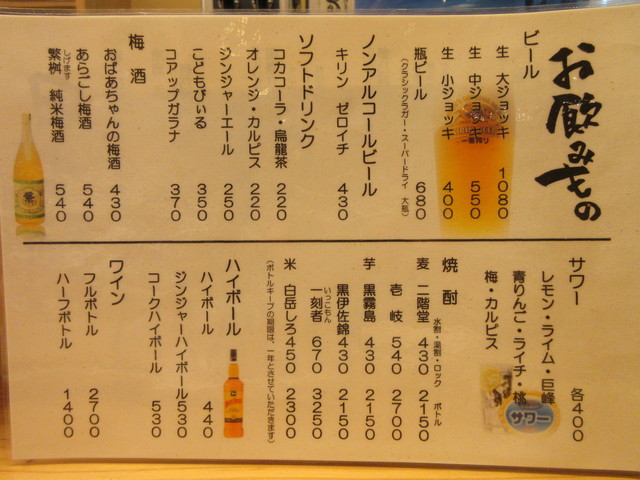 お飲みもの
ビール
生 大ジョッキ 1080
生 中ジョッキ 550
生 小ジョッキ 400
瓶ビール 680
(クラシックラガー・スーパードライ 大瓶)
ノンアルコールビール
キリン ゼロイチ 430
ソフトドリンク
コカコーラ・烏龍茶 220
オレンジ・カルピス 220
ジンジャーエール 250
こどもびぃる 350
コアップガラナ 370
梅酒
おばあちゃんの梅酒 430
あらごし梅酒 540
しげます
繁桝 純米梅酒 540
サワー
レモン・ライム・巨峰
青りんご・ライチ・桃
梅・カルピス
各400
サワー
焼酎
水割・湯割・ロック ボトル
麦 二階堂 430 2150
壱岐 540 2700
芋 黒霧島 430 2150
黒伊佐錦 430 2150
いっこもん
一刻者 670 3250
米 白岳しろ 450 2300
(ボトルキープの期限は、一年とさせていただきます)
ハイボール
ハイボール 440
ジンジャーハイボール 530
コークハイボール 530
ワイン
フルボトル 2700
ハーフボトル 1400